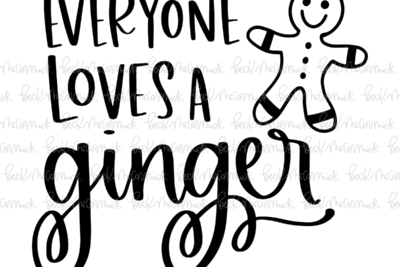 EVERYONE
LOVES A
ginger